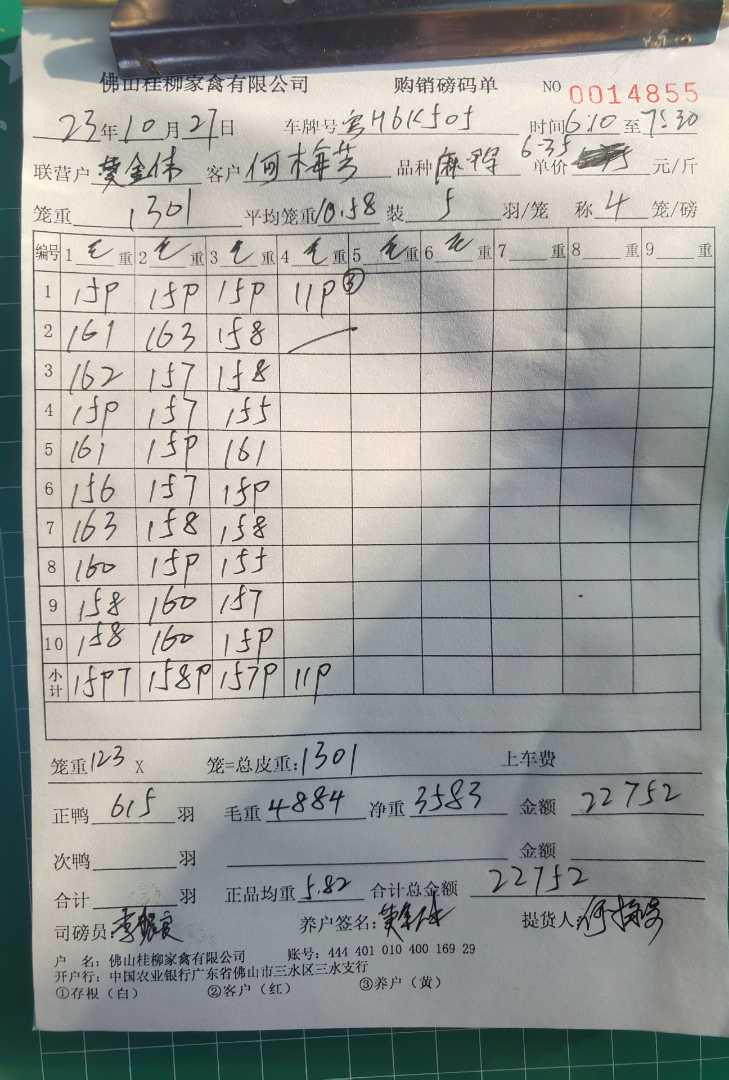 佛山桂柳家禽有限公司 购销磅码单 NO 0014855
23年10月27日 车牌号粤H6K505 时间6:10至7:30
联营户黄金伟 客户何梅芳 品种麻鸭 6.35 单价 元/斤
笼重1301 平均笼重10.58 装5羽/笼 称4笼/磅
编号 1毛重 2毛重 3毛重 4毛重 5毛重 6毛重 7重 8重 9重
1 159 159 159 119 ③
2 161 163 158
3 162 157 158
4 159 157 155
5 161 159 161
6 156 157 159
7 163 158 158
8 160 159 155
9 158 160 157
10 158 160 159
小计 1597 1589 1579 119
笼重123 X 笼=总皮重:1301 上车费
正鸭615羽 毛重4884 净重3583 金额22752
次鸭 羽 金额
合计 羽 正品均重5.82 合计总金额22752
司磅员: 养户签名:黄金伟 提货人:何梅芳
户 名: 佛山桂柳家禽有限公司 账号: 444 401 010 400 169 29
开户行: 中国农业银行广东省佛山市三水区三水支行
①存根（白） ②客户（红） ③养户（黄）